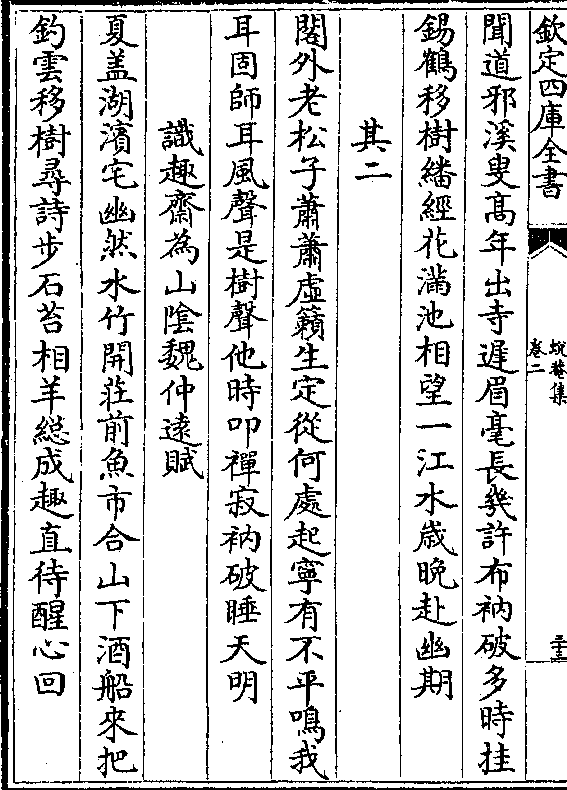 欽定四庫全書
蜕菴集
卷二
三十三
聞道邪溪叟髙年出寺遲眉毫長幾許布衲破多時挂
錫鶴移樹繙經花滿池相望一江水歳晚赴幽期
其二
閣外老松子蕭蕭虚籟生定從何處起寧有不平鳴我
耳固師耳風聲是樹聲他時叩禪寂衲破睡天明
識趣齋為山隂魏仲逺賦
夏盖湖濱宅幽然水竹開莊前魚市合山下酒船來把
釣雲移樹尋詩步石苔相羊總成趣直待醒心回